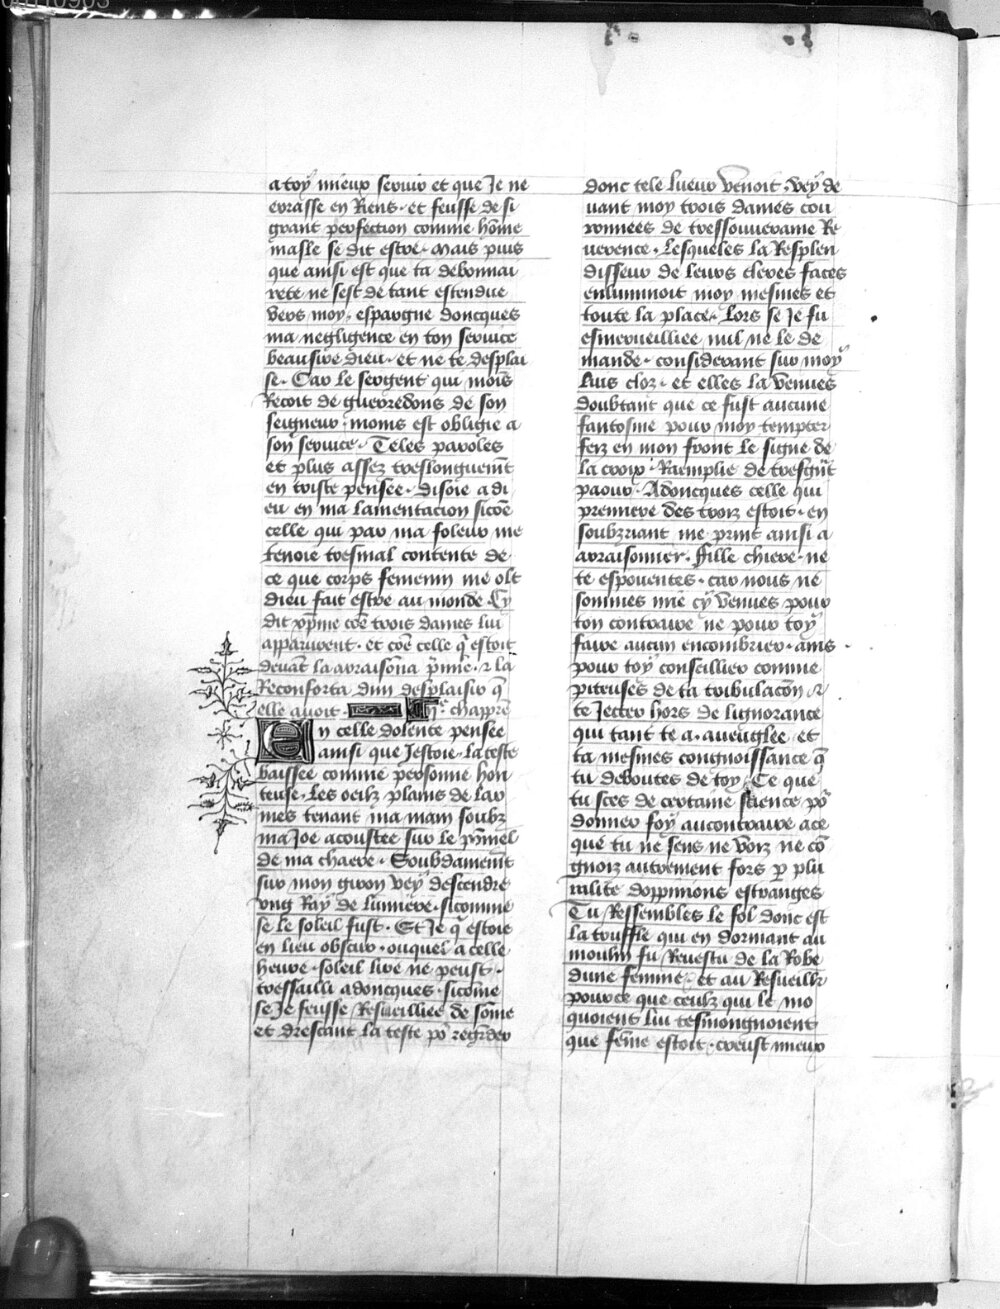 a toy mieux servir et que Je ne
errasse en Riens. et feusse de si
grant perfection comme hōme
masle se dit estre. Mais puis
que ainsi est que ta debonnai
rete ne sest de tant estendue
vers moy. espargne doncques
ma negligence en ton service
beausire dieu. et ne te desplai
se. Car le sergent qui moīs
Recoit de guerredons de son
seigneur. moins est obligie a
son service. Teles paroles
et plus assez treslonguemēt
en triste pensee. disoie a di
eu en ma lamentacion sicōe
celle qui par ma foleur me
tenoie tresmal contente de
ce que corps femenin me olt
dieu fait estre au monde Cy
dit xp̄ine cōe trois dames lui
apparurent. et cōe celle q̄ estoit
devāt la araisōna p̄mīe. ⁊ la
Reconforta dun desplaisir q̄
elle avoit. chapp̄re
En celle dolente pensee
ainsi que Jestoie. la teste
baissee comme personne hon
teuse. Les oeilz plains de lar
mes tenant ma main soubz
ma Joe acoustee sur le pōmel
de ma chaere. Soubdainemēt
sur mon giron vey descendre
vng Ray de lumiere. sicomme
se le soleil fust. Et Je q̄ estoie
en lieu obscur. ouquel a celle
heure. soleil luire ne peust.
tressailli adoncques. sicōme
se Je feusse Resveilliee de sōme
et drescant la teste po regarder
donc tele lueur venoit. vey de
vant moy trois dames cou
ronnees de tressouveraine Re
verence. Lesqueles la Resplen
disseur de leurs cleres faces
enluminoit moy mesmes et
toute la place. Lors se Je fu
esmerveilliee nul ne le de
mande. considerant sur moy
huis cloz. et elles la venues
doubtant que ce fust aucune
fantosme pour moy tempter
feiz en mon front le signe de
la croix. Raemplie de tresgrāt
paour. Adoncques celle qui
premiere des trois estoit. en
soubzriant me print ainsi a
araisonner. fille chiere. ne
te espoventes. car nous ne
sommes mie cy venues pour
ton contraire ne pour toy
faire aucun encombrier. ains
pour toy conseillier comme
piteuses de ta tribulacōn ⁊
te Jecter hors de lignorance
qui tant te a. aveuglee. et
ta mesmes congnoissance q̄
tu deboutes de toy. Ce que
tu sces de certaine science po
donner foy aucontraire a ce
que tu ne sens ne voiz ne cō
gnoiz autrement fors p̄ plu
ralite doppinions estranges
Tu Ressembles le fol donc est
la truffle qui en dormant au
moulin fu Revestu de la Robe
dune femme. et au Resveillr
pource que ceulz qui le mo
quoient lui tesmongnoient
que fēme estoit. creust mieux